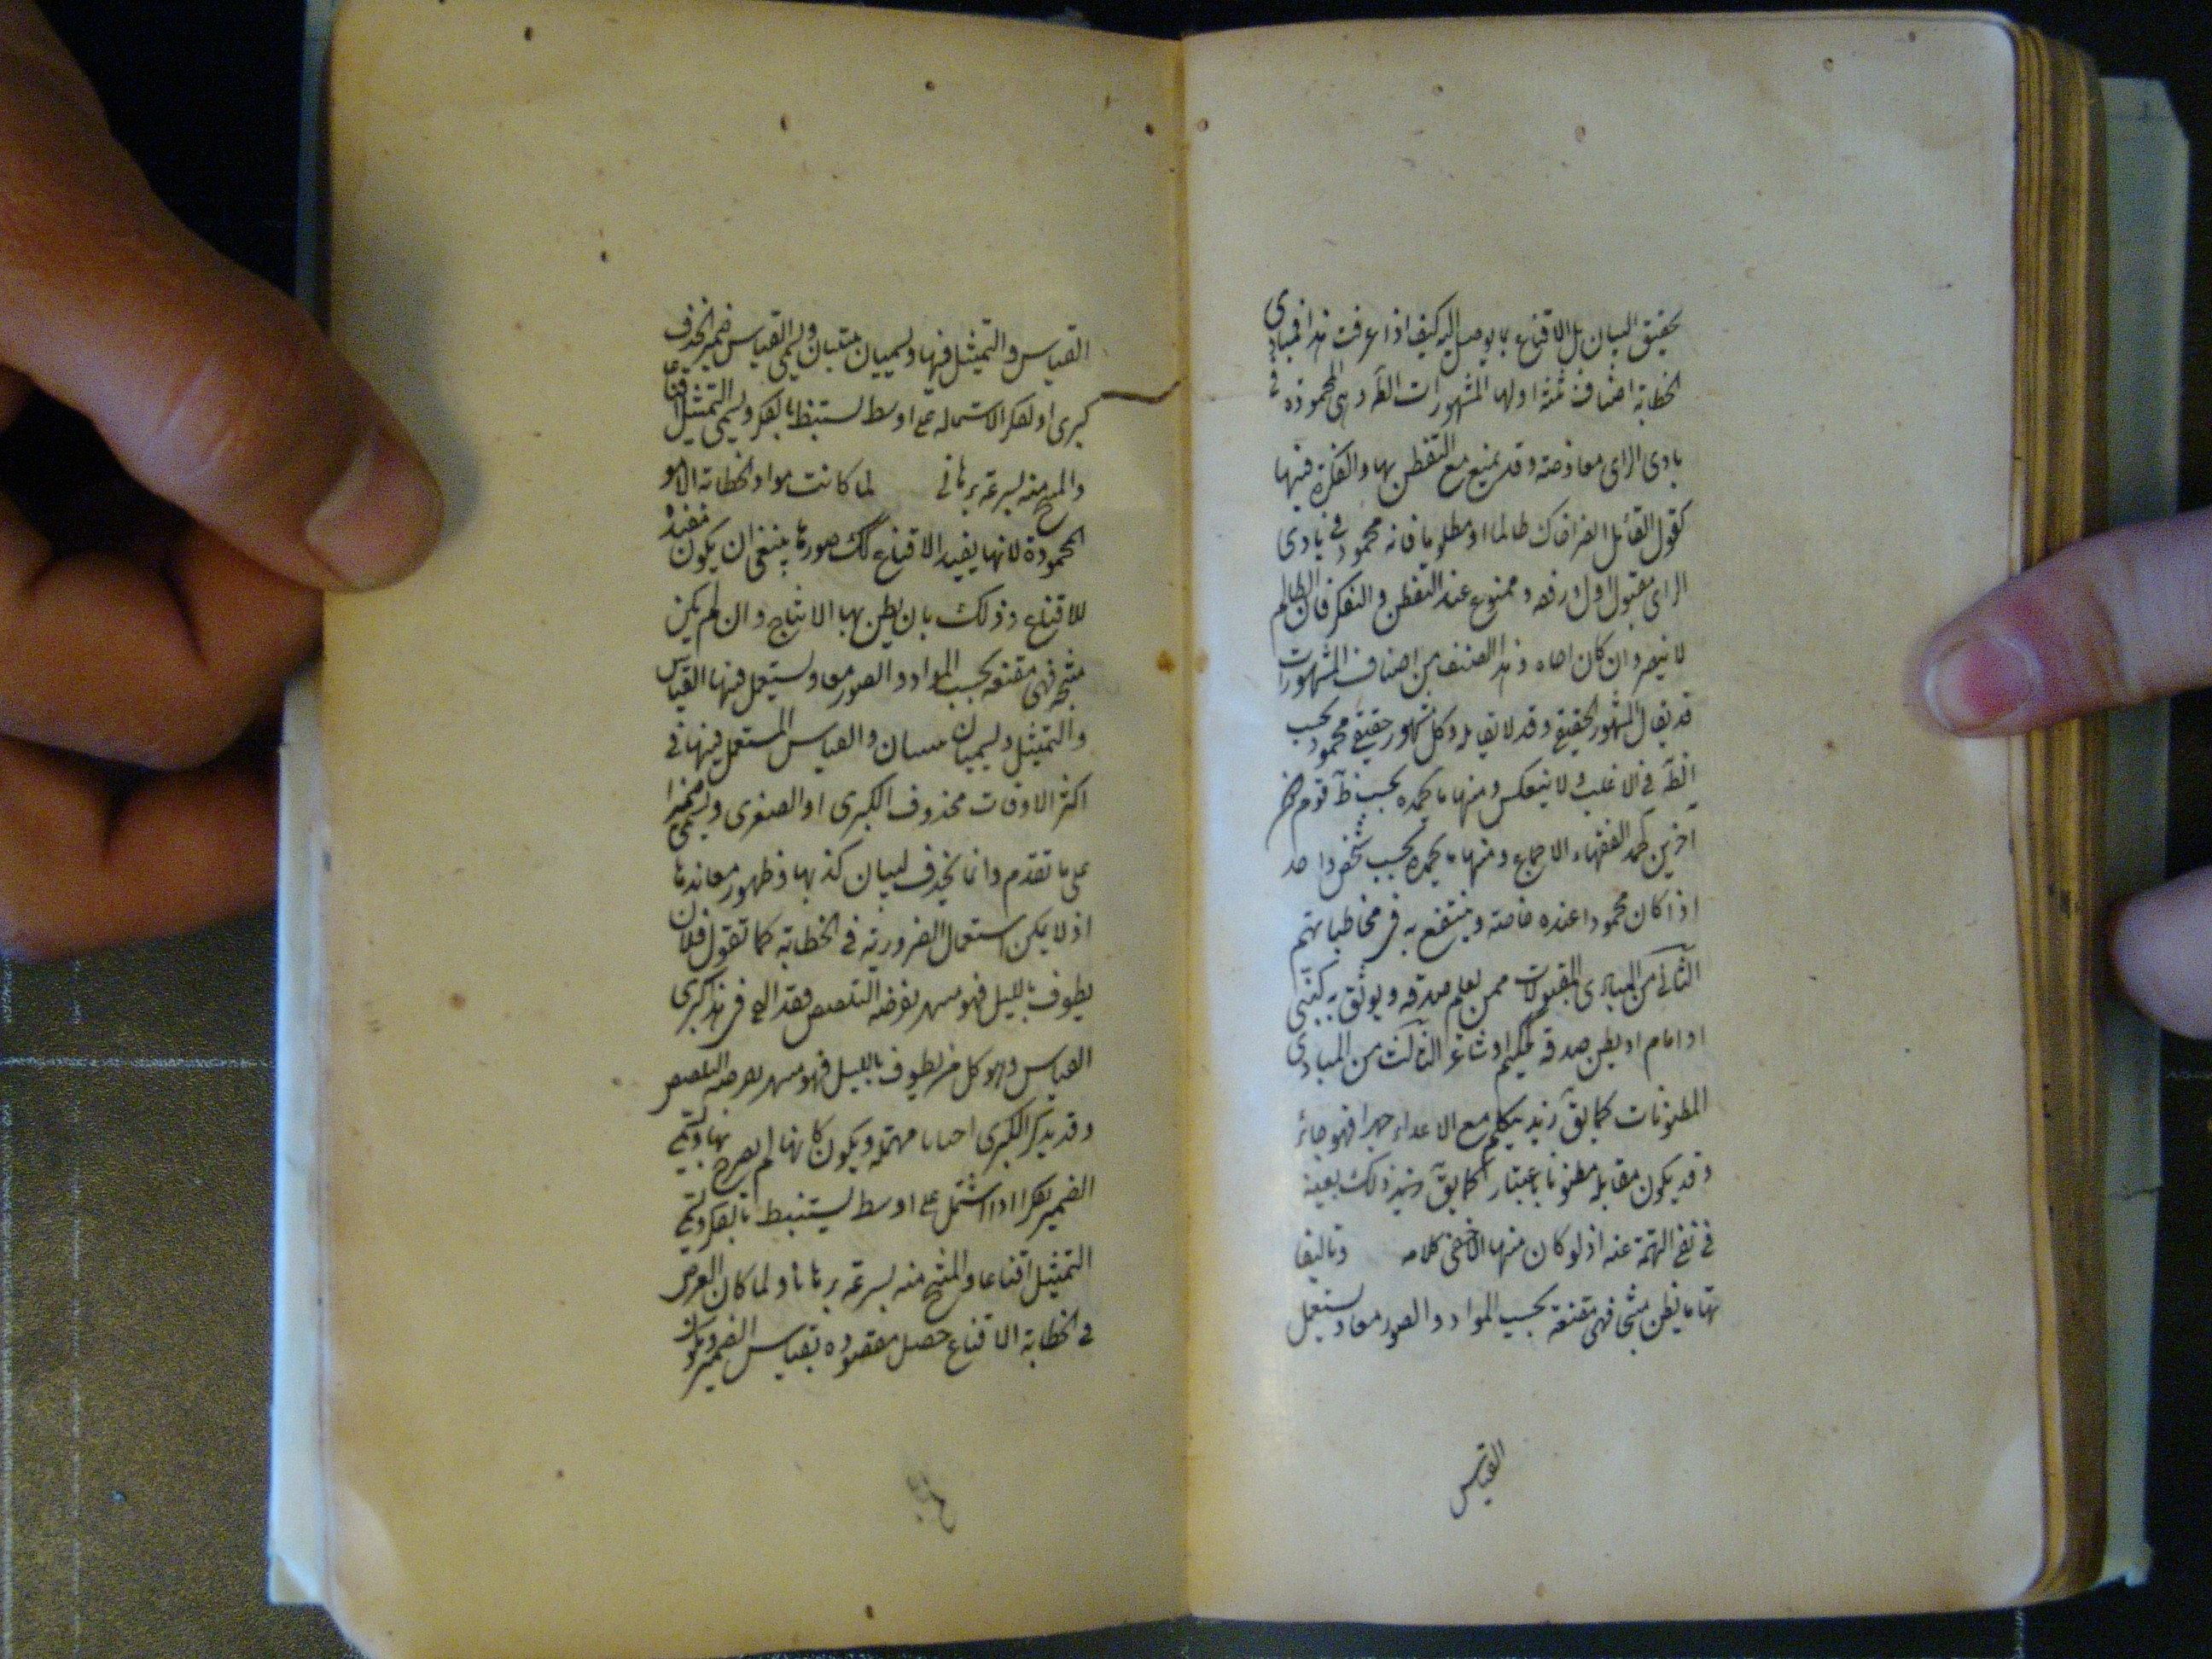 تحقيق البيان بل الاقناع بما يوصل اليه كيف اذا عرفت هذا فمبادى
الخطابة اصناف ثلثة اولها المشهورات الظ وهى المحموده فى
بادى الراى معاوضته وقد يمنع مع التفطن بها والفكرة فيها
كقول القائل انصر اخاك ظالما او مظلوما فانه محمود فى بادى
الراى مقبول اول رفعه وممنوع عند التفطن والتفكر فان الظالم
لا ينصر وان كان اخاه وهذا الصنف من اصناف المشهورات
قد يقابل المشهور الحقيقى وقد لا يقابله وكل مشهور حقيقى محمود بحسب
الظ فى الاغلب ولا ينعكس ومنها ما يحمده بحسب ظ قوم
آخرين كحمد الفقهاء الاجماع ومنها ما يحمده بحسب شخص واحد
اذا كان محمودا عنده خاصة وينتفع به فى مخاطباتهم
الثانى من المبادى المقبولات ممن يعلم صدقه ويوثق به كنبى
او امام او يظن صدقه كحكيم او شاعر الثالث من المبادى
المظنونات كما يق زيد يتكلم مع الاعداء جهرا فهو جائر
وقد يكون مقابله مظنونا باعتبار كما يق زيد ذلك بعينه
فى نفى التهمة عنه اذ لو كان متهما لاخفى كلامه وتاليفا
تها ما يظن منتجا فهى مقنعة بحسب المواد والصور معا ويستعمل
القياس
القياس والتمثيل فيها ويسميان مثبتان ويسمى القياس ضمير الحذف
كبرى او تفكر الاشتماله على اوسط يستنبط بالفكر ويسمى التمثيل اقناعا
والمنتج منه بسرعة برهانى لما كانت مواد الخطابة الامور
المحمودة لانها يفيد الاقناع كك صورها ينبغى ان يكون مفيده
للاقناع وذلك بان يظن بها الانتاج وان لم يكن
منتجه فهى مقنعة بحسب المواد والصور معا ويستعمل فيها القياس
والتمثيل ويسميان والقياس المستعمل فيها فى
اكثر الاوقات محذوف الكبرى او الصغرى ويسمى ضميرا
على ما تقدم وانما يحذف لبيان كذبها وظهور معاندها
اذ لا يمكن استعمال الضرورية فى الخطابة كما تقول فلان
يطوف بالليل فهو متهم بغرضه التلصص فقد الى فى هذا كبرى
القياس وهو كل من يطوف بالليل فهو متهم بغرضه التلصص
وقد يذكر الكبرى احيانا مهملة ويكون كانها لم يصرح بها ويسمى
الضمير تفكرا اذا اشتمل على اوسط يستنبط بالفكر ويسمى
التمثيل اقناعا والمنتج منه بسرعة برهانا ولما كان الغرض
فى الخطابة الاقناع حصل مقصوده بقياس الضمير ويكون